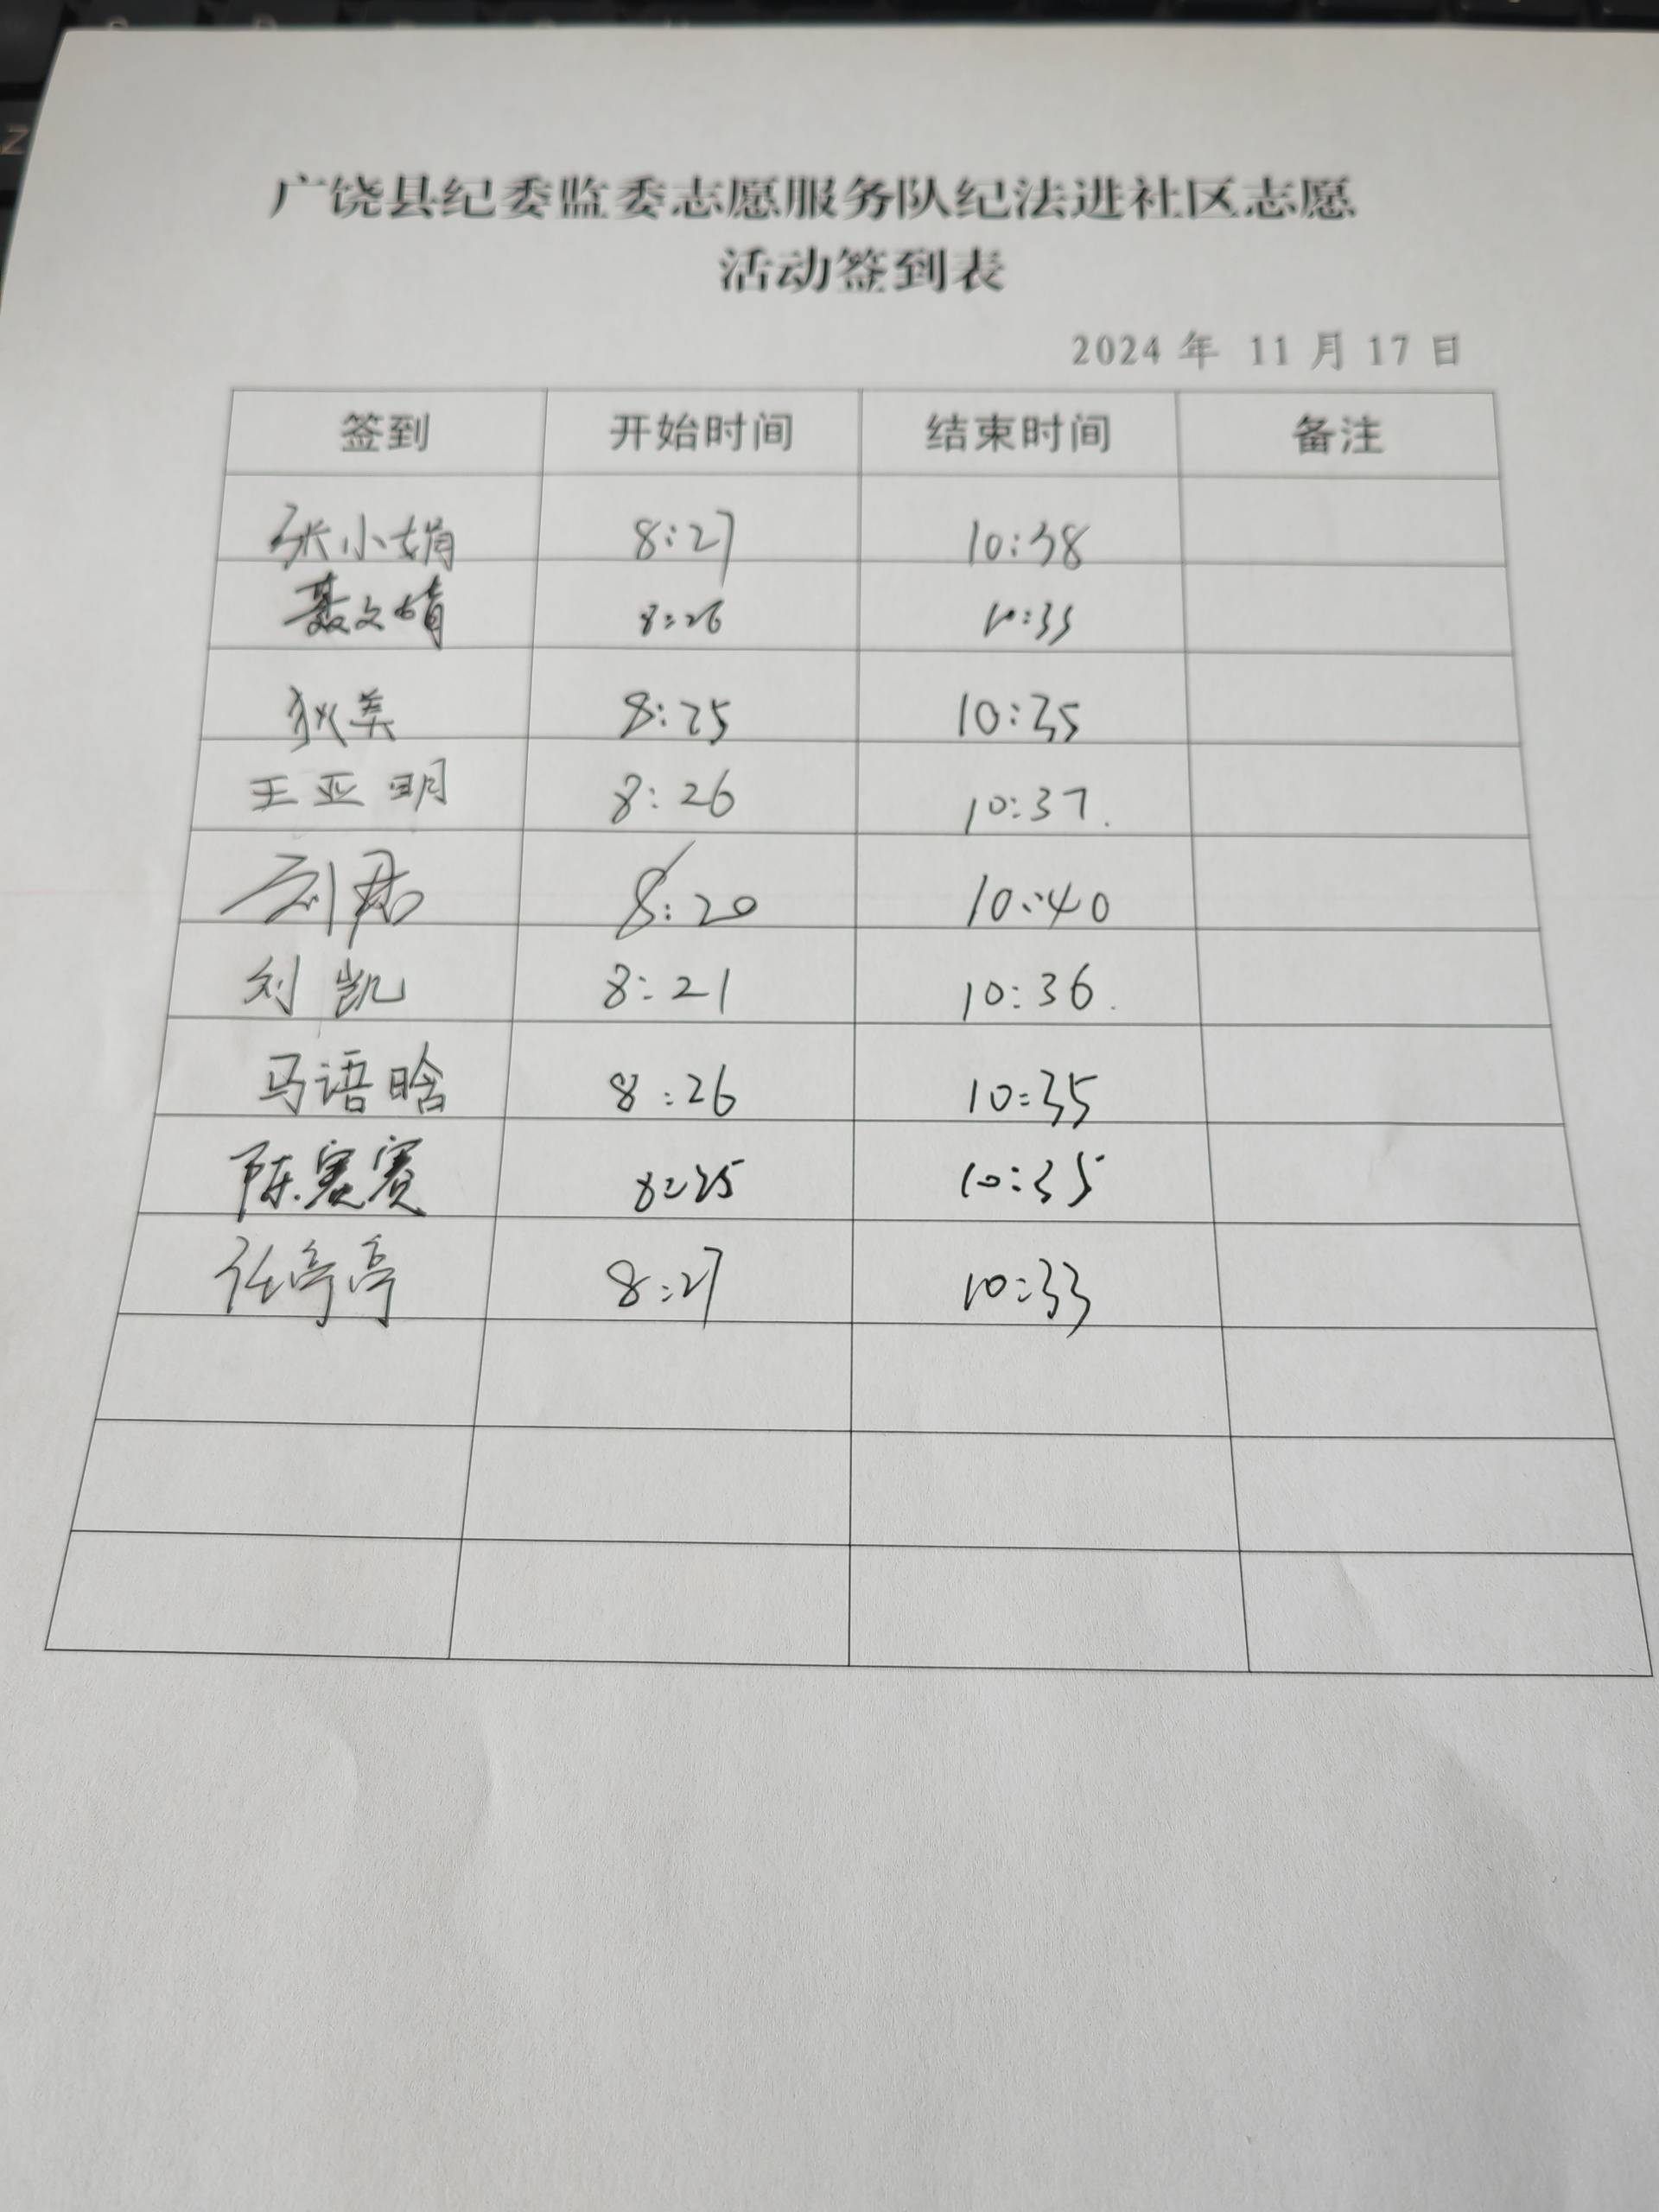 广饶县纪委监委志愿服务队纪法进社区志愿
活动签到表
2024 年 11 月 17 日
签到 开始时间 结束时间 备注
张小娟 8:27 10:38
聂文婧 8:26 10:35
狄美 8:25 10:35
王亚明 8:26 10:37.
刘君 8:20 10:40
刘凯 8:21 10:36.
马语晗 8:26 10:35
陈赛赛 8:25 10:35
任亭亭 8:27 10:33